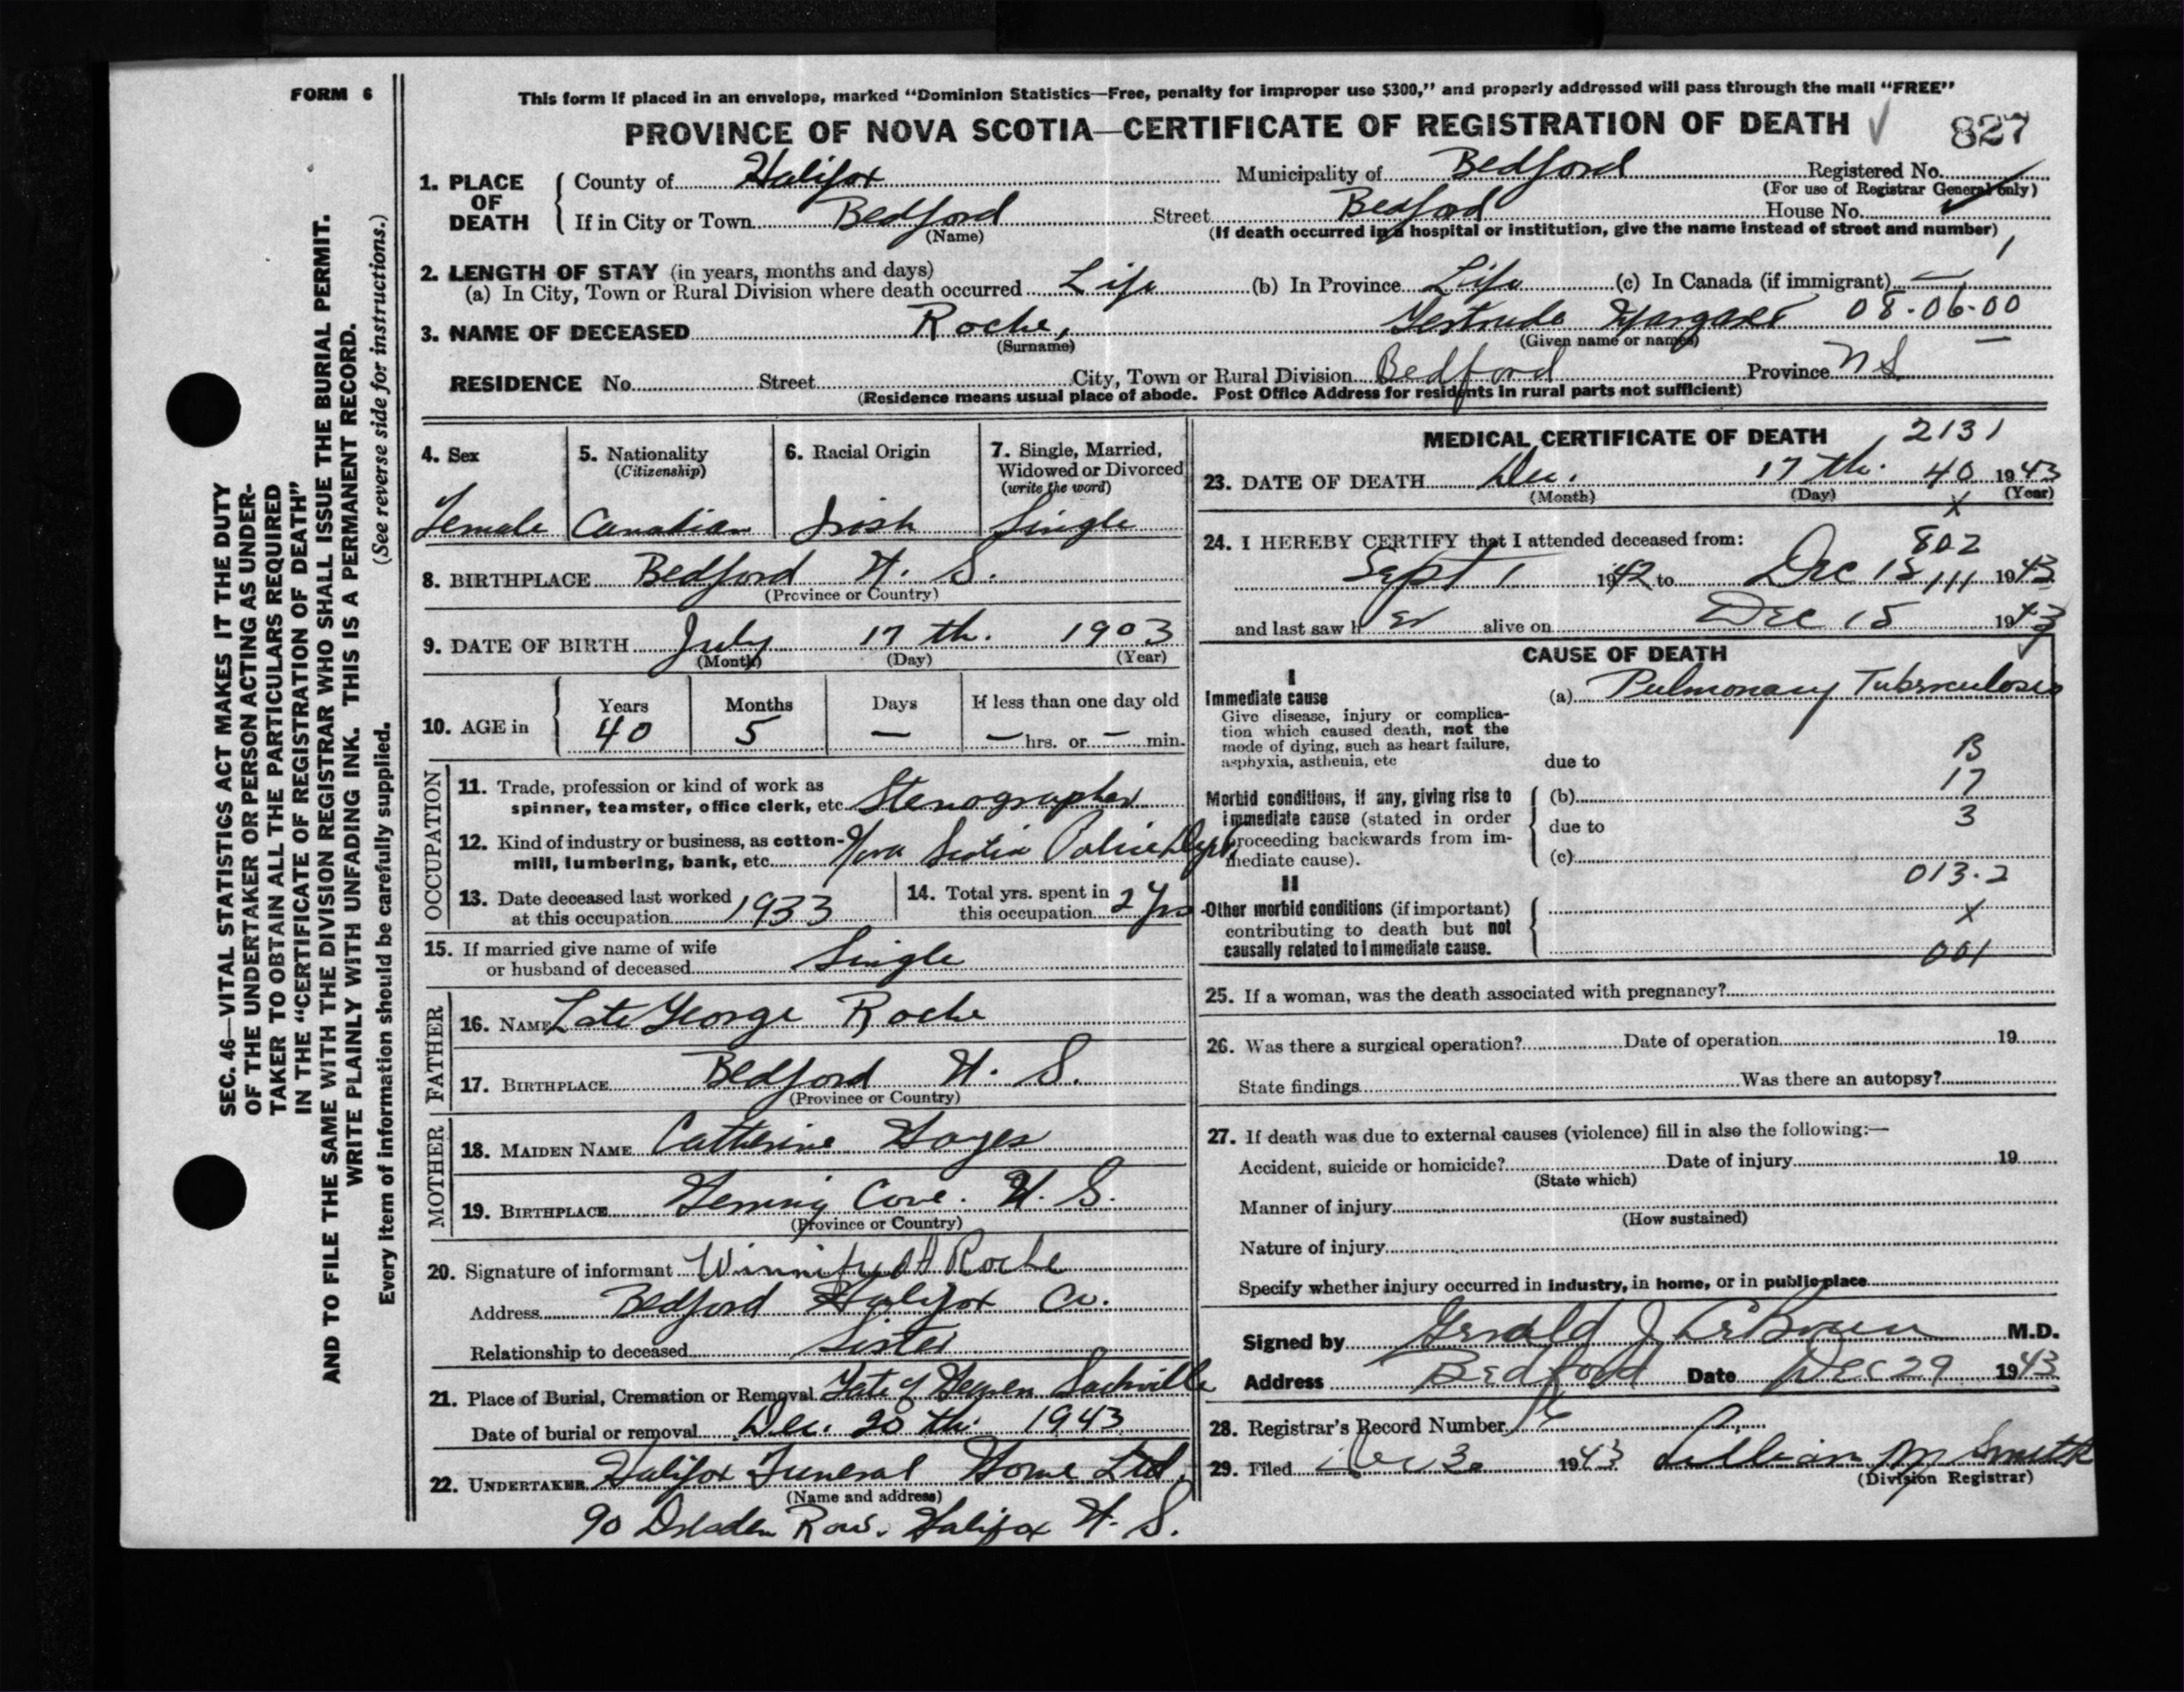 FORM 6
This form if placed in an envelope, marked "Dominion Statistics—Free, penalty for improper use $300," and properly addressed will pass through the mail "FREE"
PROVINCE OF NOVA SCOTIA—CERTIFICATE OF REGISTRATION OF DEATH ✓ 827
1. PLACE OF DEATH
County of Halifax Municipality of Bedford Registered No.
(For use of Registrar General only)
If in City or Town Bedford Street Bedford House No.
(Name) (If death occurred in a hospital or institution, give the name instead of street and number)
1
2. LENGTH OF STAY (in years, months and days)
(a) In City, Town or Rural Division where death occurred Life (b) In Province Life (c) In Canada (if immigrant) —
3. NAME OF DECEASED Roche, Gertrude Margaret 08-06-00
(Surname) (Given name or names)
RESIDENCE No. Street City, Town or Rural Division Bedford Province N S
(Residence means usual place of abode. Post Office Address for residents in rural parts not sufficient)
4. Sex
Female
5. Nationality
(Citizenship)
Canadian
6. Racial Origin
Irish
7. Single, Married,
Widowed or Divorced
(write the word)
Single
8. BIRTHPLACE Bedford N. S.
(Province or Country)
9. DATE OF BIRTH July 17 th. 1903
(Month) (Day) (Year)
10. AGE in
Years Months Days If less than one day old
40 5 — — hrs. or — min.
OCCUPATION
11. Trade, profession or kind of work as
spinner, teamster, office clerk, etc. Stenographer
12. Kind of industry or business, as cotton-
mill, lumbering, bank, etc. Nova Scotia Police Dept.
13. Date deceased last worked
at this occupation 1933
14. Total yrs. spent in
this occupation 2 yrs
15. If married give name of wife
or husband of deceased Single
FATHER
16. NAME Late George Roche
17. BIRTHPLACE Bedford N. S.
(Province or Country)
MOTHER
18. MAIDEN NAME Catherine Hayes
19. BIRTHPLACE Herring Cove. N. S.
(Province or Country)
20. Signature of informant Winnifred Roche
Address Bedford Halifax Co.
Relationship to deceased Sister
21. Place of Burial, Cremation or Removal Gate of Heaven Sackville
Date of burial or removal Dec. 20 th 1943
22. UNDERTAKER Halifax Funeral Home Ltd.
(Name and address)
90 Dresden Row. Halifax N. S.
MEDICAL CERTIFICATE OF DEATH 2131
23. DATE OF DEATH Dec. 17 th. 40 1943
(Month) (Day) (Year)
X
24. I HEREBY CERTIFY that I attended deceased from:
802
Sept 1 1942 to Dec 15 111 1943
and last saw h er alive on Dec 15 1943
CAUSE OF DEATH
I
Immediate cause
Give disease, injury or complica-
tion which caused death, not the
mode of dying, such as heart failure,
asphyxia, asthenia, etc
(a) Pulmonary Tuberculosis
due to
B
17
Morbid conditions, if any, giving rise to
immediate cause (stated in order
proceeding backwards from im-
mediate cause).
(b)
due to
3
(c)
013.2
II
Other morbid conditions (if important)
contributing to death but not
causally related to immediate cause.
X
001
25. If a woman, was the death associated with pregnancy?
26. Was there a surgical operation? Date of operation 19
State findings Was there an autopsy?
27. If death was due to external causes (violence) fill in also the following:—
Accident, suicide or homicide? Date of injury 19
(State which)
Manner of injury
(How sustained)
Nature of injury
Specify whether injury occurred in industry, in home, or in public place
Signed by Gerald J M.D.
Address Bedford Date Dec 29 1943
28. Registrar's Record Number
29. Filed Dec 30 1943 Lillian M Smith
(Division Registrar)
SEC. 46—VITAL STATISTICS ACT MAKES IT THE DUTY
OF THE UNDERTAKER OR PERSON ACTING AS UNDER-
TAKER TO OBTAIN ALL THE PARTICULARS REQUIRED
IN THE "CERTIFICATE OF REGISTRATION OF DEATH"
AND TO FILE THE SAME WITH THE DIVISION REGISTRAR WHO SHALL ISSUE THE BURIAL PERMIT.
WRITE PLAINLY WITH UNFADING INK. THIS IS A PERMANENT RECORD.
Every item of information should be carefully supplied. (See reverse side for instructions.)